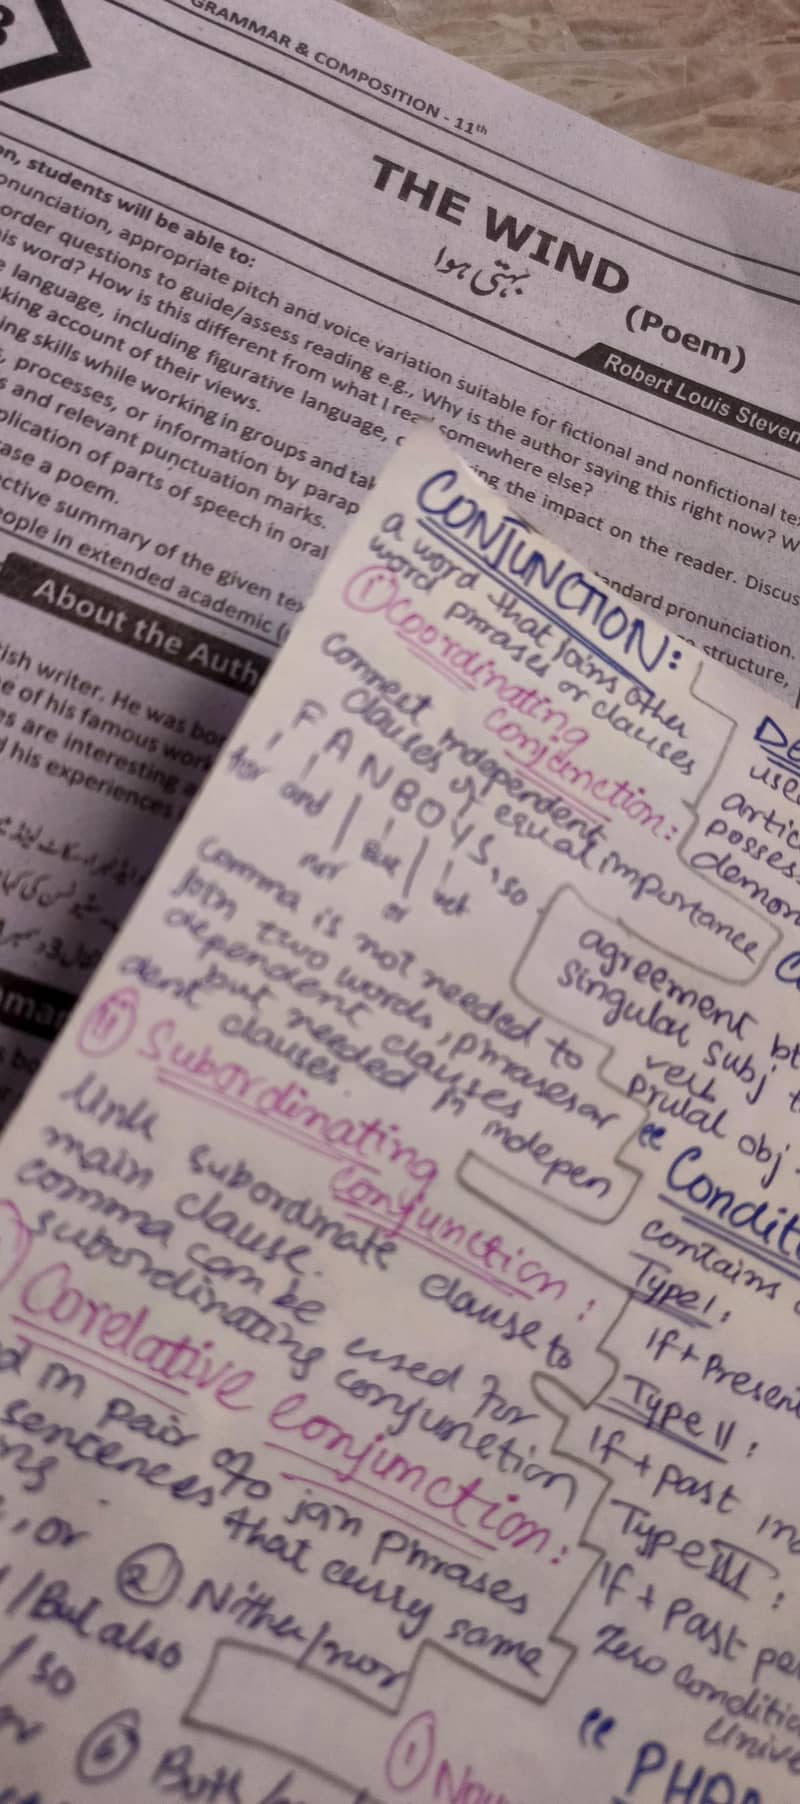 GRAMMAR & COMPOSITION - 11th
THE WIND
بہتی ہوا
(Poem)
Robert Louis Steven
on, students will be able to:
onunciation, appropriate pitch and voice variation suitable for fictional and nonfictional te
order questions to guide/assess reading e.g., Why is the author saying this right now? W
is word? How is this different from what I rea somewhere else?
e language, including figurative language, ing the impact on the reader. Discus
king account of their views.
ing skills while working in groups and tak andard pronunciation.
, processes, or information by parap structure,
s and relevant punctuation marks.
plication of parts of speech in oral
ase a poem.
ective summary of the given tex
eople in extended academic
About the Auth
ish writer. He was bor
e of his famous work
es are interesting a
d his experiences
CONJUNCTION:
a word that joins other
word phrases or clauses
(i) Coordinating
conjunction:
connect independent
clauses of equal importance
F A N B O Y S
for and nor But or yet so
comma is not needed to
join two words, phrases or
dependent clauses
but needed in indepen
dent clauses.
(ii) Subordinating
conjunction:
Link subordinate clause to
main clause.
comma can be used for
subordinating conjunction
Corelative conjunction:
d in pair to join phrases
sentences that carry same
, or (2) Nither/nor
/But also
/so
(6) Both
De
use
artic
posses
demon
agreement bt
singular subj
verb
prular obj
"Condit
contains
Type I:
If + Present
Type II:
If + past in
Type III:
If + past pe
Zero Conditio
Unive
"PHRA
(1) Nou